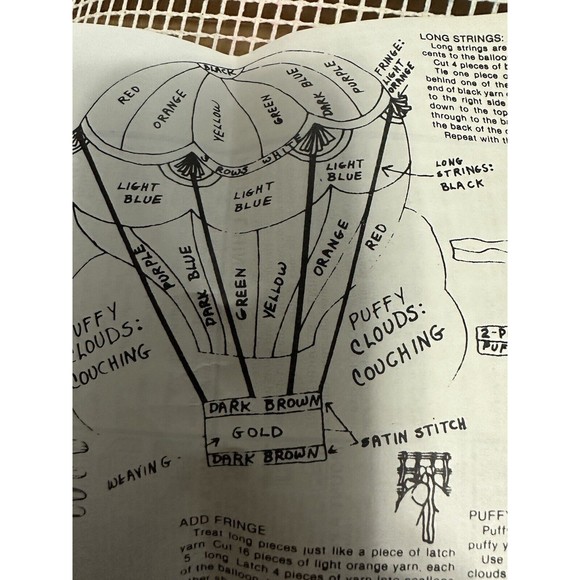 LONG STRINGS:
Long strings are
cents to the balloo
Cut 4 pieces of b
Tie one piece o
behind one of the
end of black yarn
to the right side
down to the top
through to the ba
the back of the
Repeat with th
FRINGE:
LIGHT
ORANGE
BLACK
RED
ORANGE
YELLOW
GREEN
DARK BLUE
PURPLE
ROWS WHITE
LIGHT
BLUE
LIGHT
BLUE
LIGHT
BLUE
LONG
STRINGS:
BLACK
PURPLE
DARK BLUE
GREEN
YELLOW
ORANGE
RED
UFFY
LOUDS:
OUCHING
PUFFY
CLOUDS:
COUCHING
2-P
PUF
DARK BROWN
GOLD
DARK BROWN
WEAVING
SATIN STITCH
ADD FRINGE
Treat long pieces just like a piece of latch
yarn. Cut 16 pieces of light orange yarn, each
5" long. Latch 4 pieces of yarn into
of the balloon
PUFFY
Puff
puffy y
Use
clouds